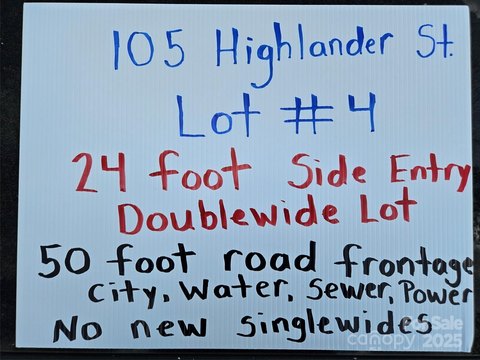 105 Highlander St.
Lot #4
24 foot Side Entry
Doublewide Lot
50 foot road frontage
City, Water, Sewer, Power
No new singlewides
canopy 2025